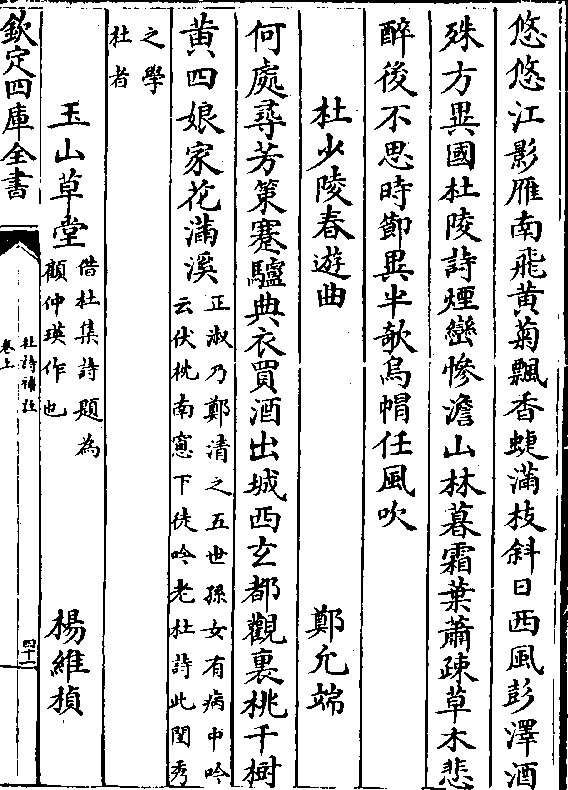 悠悠江影雁南飛黄菊飄香蜨滿枝斜日西風彭澤酒
殊方異國杜陵詩煙巒慘澹山林暮霜葉蕭疎草木悲
醉後不思時節異半欹烏帽任風吹
杜少陵春遊曲 鄭允端
何處尋芳策蹇驢典衣買酒出城西玄都觀裏桃千樹
黄四娘家花滿溪正淑乃鄭清之五世孫女有病中吟
云伏枕南窻下徒吟老杜詩此閨秀
之學
杜者
玉山草堂借杜集詩題為
顧仲瑛作也 楊維楨
欽定四庫全書
杜詩捃
卷上
四十二